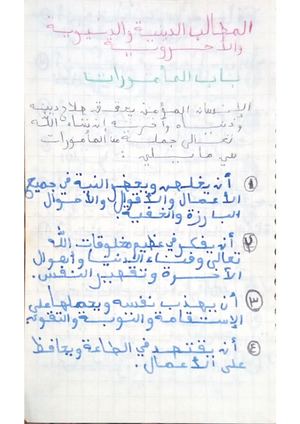 المطالب الدينية والدنيوية
والأخروية
باب المأمورات
الإنسان المؤمن يحقق صلاح دينه
ودنياه وآخرته إن شاء الله
تعالى جملة من المأمورات
هي ما يلي :
١ أن يخلص ويحضر النية في جميع
الأعمال والأقوال والأحوال
البارزة والخفية
٢ أن يفكر في عظيم مخلوقات الله
تعالى وفناء الدنيا وأهوال
الآخرة وتقصير النفس.
٣ أن يهذب نفسه ويحملها على
الإستقامة والتوبة والتقوى
٤ أن يقتصد في الطاعة ويحافظ
على الأعمال.